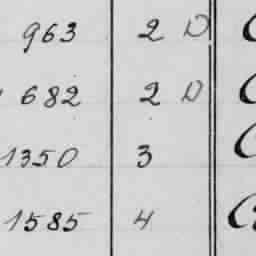 963 2 D
682 2 D
1350 3
1585 4